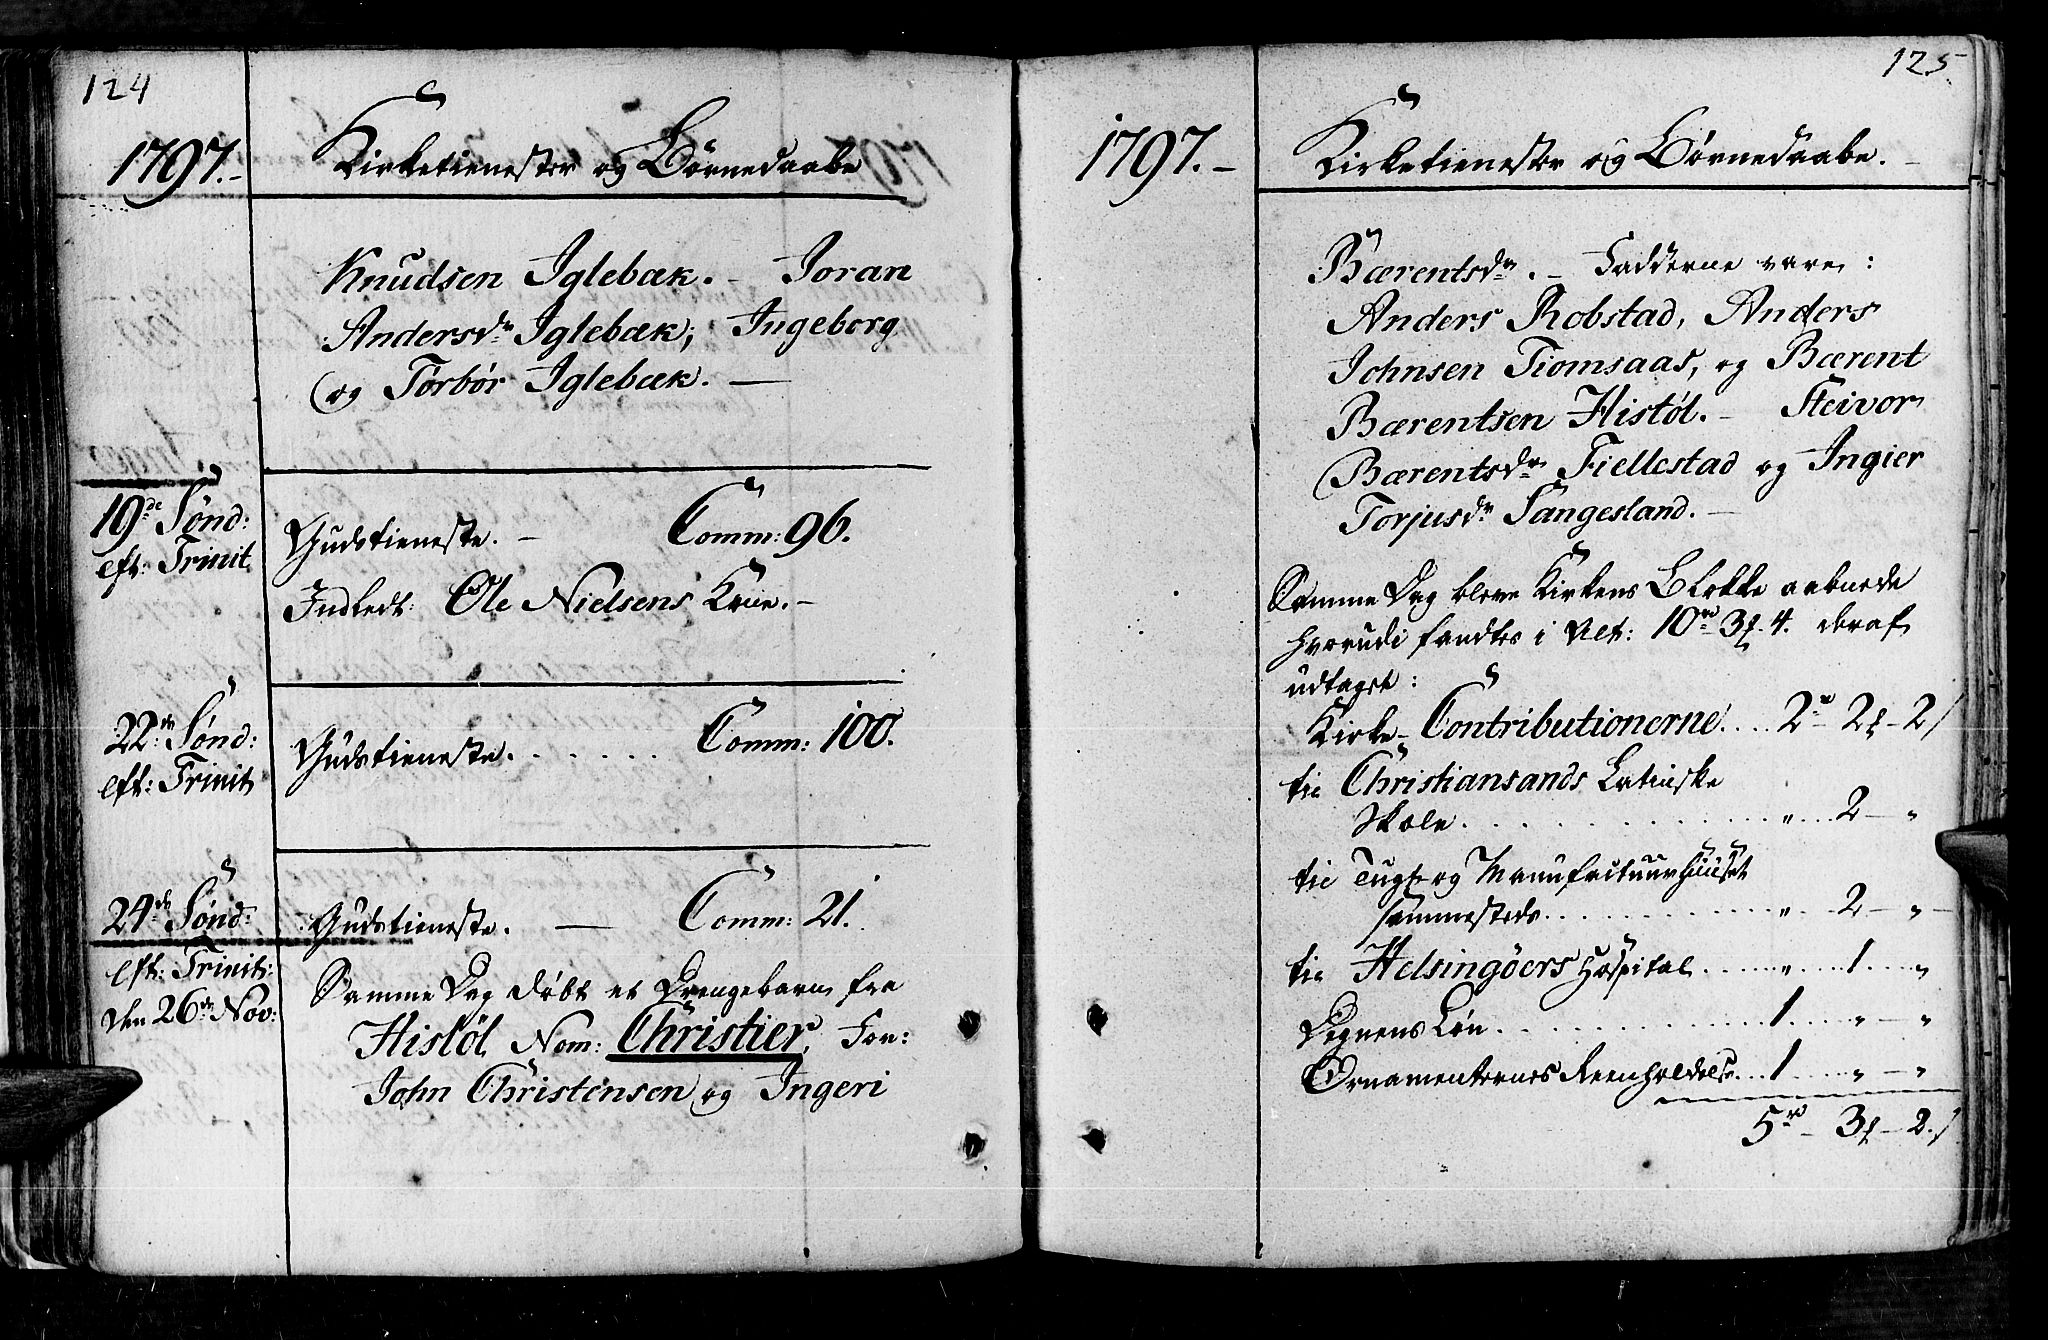 124
1797.-
Kirketienester og Børnedaabe
Knudsen Iglebæk. - Joran
Andersdr Iglebæk, Ingeborg
og Torbør Iglebæk. —
19de Sønd:
eft: Trinit
Gudstieneste. - Comm: 96.
Indledt: Ole Nielsens Kone. -
22de Sønd:
eft: Trinit
Gudstieneste. . . . . . Comm: 100.
24de Sønd:
eft: Trinit:
den 26de Nov:
Gudstieneste. — Comm: 21.
Samme Dag døbt et Drengebarn fra
Histøl Nom: Christier, For:
John Christensen og Ingeri
125
1797. -
Kirketienester og Børnedaabe. -
Bærentsdr. - Fadderne vare:
Anders Robstad, Anders
Johnsen Tiomsaas, og Bærent
Bærentsen Histøl. - Steivor
Bærentsdr Fiellestad og Ingier
Torjusdr Sangesland. -
Samme Dag bleve Kirkens Blokke aabnede
hvorudi fandtes i Alt: 10rd 3f 4. deraf
udtaget:
Kirke-Contributionerne. . . . 2rd - 2f - 2s
til Christiansands Latinske
Skole. . . . . . . . . . . . " . . . 2 - "
til Tugt og Manufacturhuuset
sammesteds. . . . . . . . . . . . " . . . 2 - " -
til Helsingöers Hospital. . . . . " . . . 1 . . . "
Degnens Løn. . . . . . . . . . . . 1 . . . " - "
Ornamenternes Reenholdelse. . . 1 . . . " - "
5rd - 3f - 2s